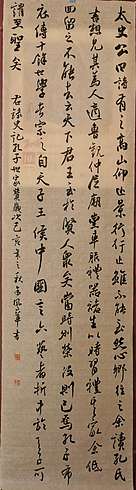 太史公曰詩有之高山仰止景行行止雖不能至然心鄉往之余讀孔氏
書想見其為人適魯觀仲尼廟堂車服禮器諸生以時習禮其家余低
回留之不能去云天下君王至於賢人眾矣當時則榮沒則已焉孔子布
衣傳十餘世學者宗之自天子王侯中國言六藝者折中於夫子可
謂至聖矣
右錄史記孔子世家贊歲次己亥之秋 書